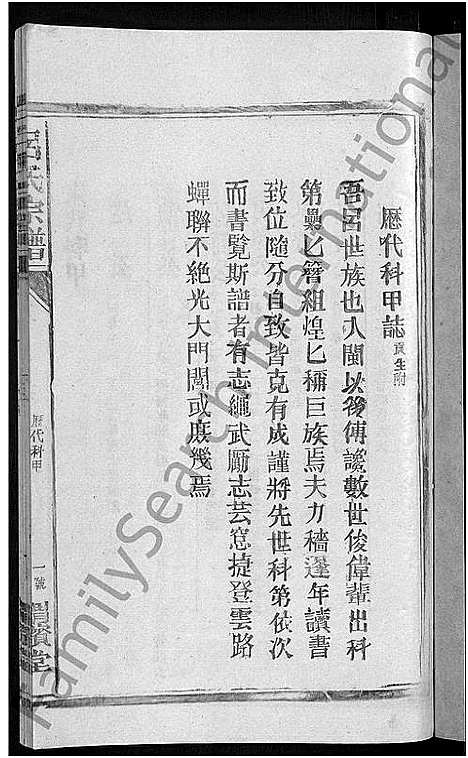 歷代科甲誌 貢生附
吾呂世族也入閩以後傳讒數世俊偉輩出科
第纍匕簪組煌匕稱巨族焉夫力穡逢年讀書
致位隨分自致皆克有成謹將先世科第依次
而書覽斯譜者有志繩武勵志芸窓捷登雲路
蟬聯不絕光大門閭或庶幾焉
呂氏宗譜
歷代科甲
一號
渭濱堂
FamilySearch International